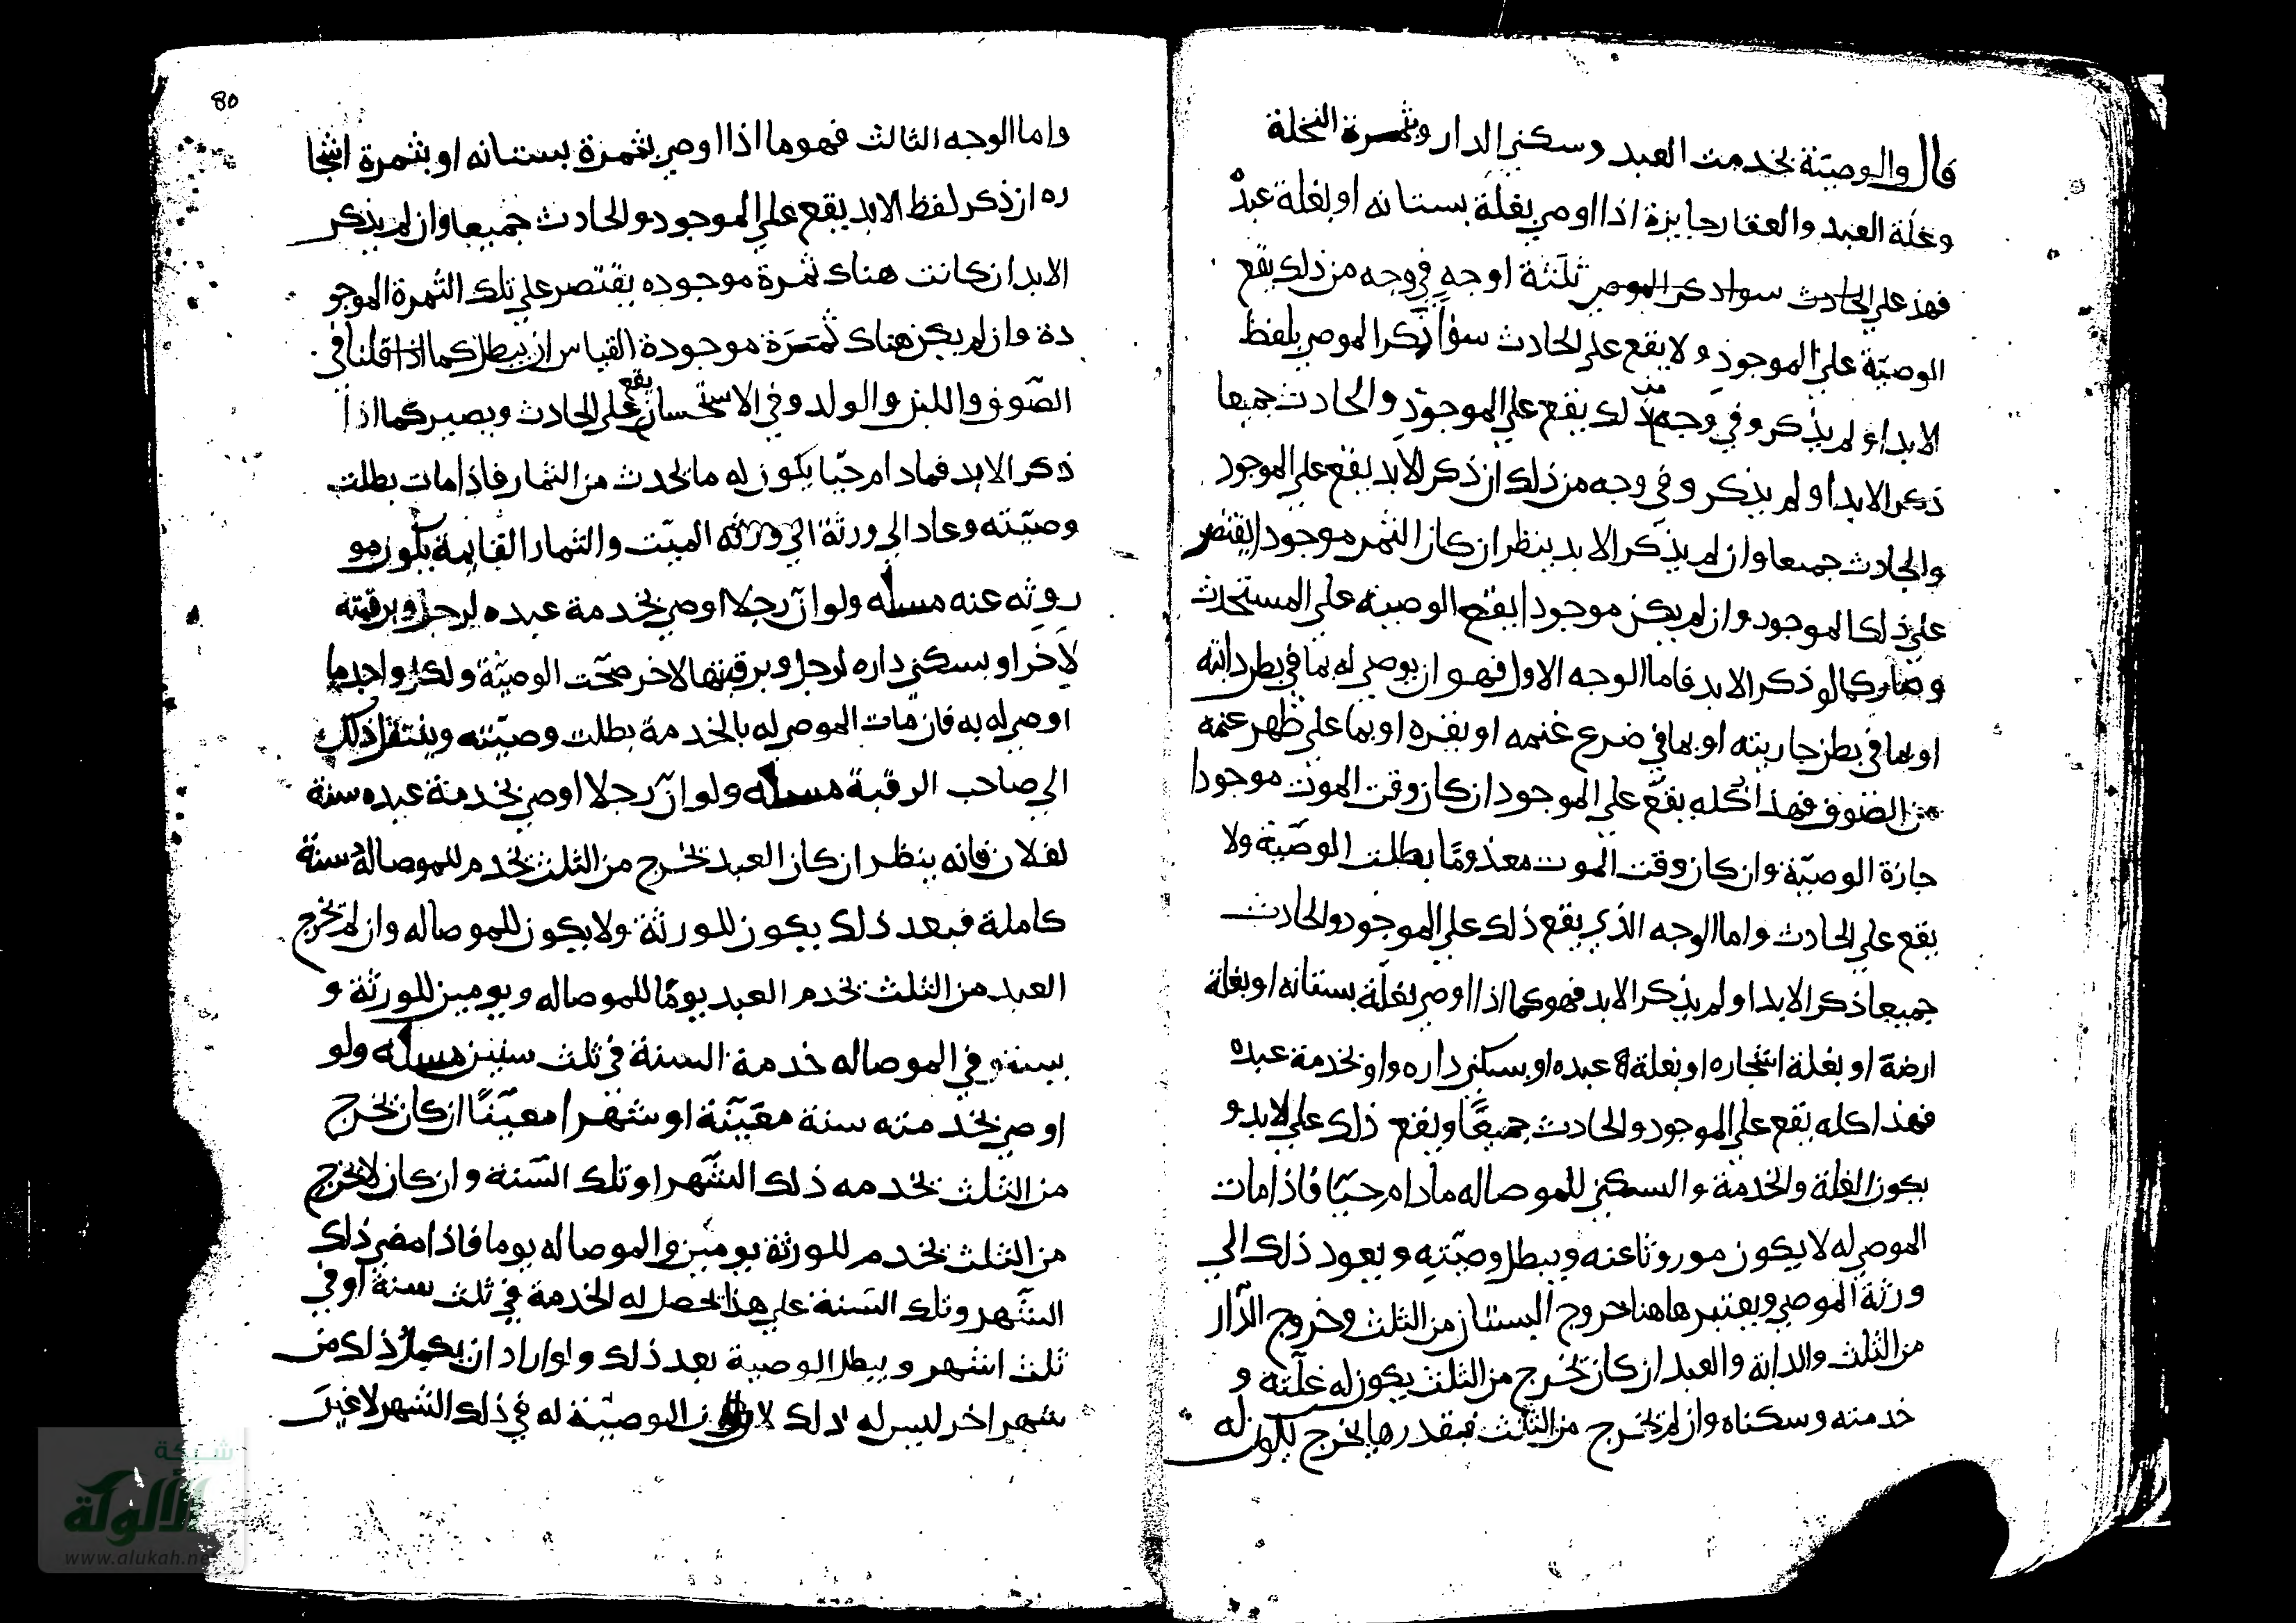 قال والوصيّة بخدمت العبد وسكني الدار وثمرة النخلة
وغلّة العبد والعقار جايزة اذا اوصي بغلّة بستانه او بغلة عبدْ
فهذ علي الحادث سواد كر الموصي ثلثة اوجهٍ في وجه من ذلك يقع
الوصيّة علي الموجودِ ولا يقع علي الحادث سوأ ذكر الموصي بلفظ
الابد او لم يذكر وفي وجه من ذلك يقع علي الموجودِ والحادث جميعا
ذكر الابد او لم يذكر وفي وجه من ذلك ان ذكر الابد يقع علي الموجود
والحادث جميعا وان لم يذكر الابد ينظر ان كان الثمر موجودا يقتصر
علي ذلك الموجود وان لم يكن موجودا يقع الوصية علي المستحدث
وصار كما لو ذكر الابد فاما الوجه الاول فهو ان يوصي له بما في بطن دابّته
او بما في بطن جاريته او بما في ضرع غنمه او بقره او بما علي ظهر غنمه
من الصوف فهذا كله يقع علي الموجود ان كان وقت الموت موجودا
جازة الوصيّة وان كان وقت الموت معدومًا بطلت الوصيّة ولا
يقع علي الحادث واما الوجه الذي يقع ذلك علي الموجود والحادث
جميعا ذكر الابد او لم يذكر الابد فهو كما اذا اوصي بغلّة بستانه او بغلة
ارضهَ او بغلة اشجاره او بغلة عبده او بسكني داره واو بخدمة عبده
فهذا كله يقع علي الموجود والحادث جميعًا ويقع ذلك علي الابد و
يكون الغلة والخدمة والسكني للموصاله مادام حيّا فاذا مات
الموصي له لا يكون موروثا عنه ويبطل وصيّته ويعود ذلك الي
ورثة الموصي ويعتبر هاهنا خروج البستان من الثلث وخروج الدّار
من الثلث والدابة والعبد ان كان يخرج من الثلث يكون له غلّته و
خدمته وسكناه وان لم يخرج من الثلث فبقدر ما يخرج يكون له
80
واما الوجه الثالث فهو ما اذا اوصي بثمرة بستانه او بثمرة اشجا
ره ان ذكر لفظ الابد يقع علي الموجود والحادث جميعا وان لم يذكر
الابد ان كانت هناك ثمرة موجوده يقتصر علي تلك الثمرة الموجو
دة وان لم يكن هناك ثمرة موجودة القياس ان يبطل كما اذا قلنا في
الصّوف واللبن والولد وفي الاستحسان يقع علي الحادث ويصير كما اذا
ذكر الابد فمادام حيّا يكون له ما يحدث من الثمار فاذا مات بطلت
وصيّته وعاد الي ورثة الي ورثه الميّت والثمار القايمة يكون مو
روثه عنه مسله ولو انّ رجلا اوصي بخدمة عبده لرجل وبرقبته
لاخَر او بسكني داره لرجل وبرقبتها لاخر صحّت الوصيّة ولكل واحد ما
اوصي له به فان مات الموصي له بالخدمة بطلت وصيّته وينتقل ذلك
الي صاحب الرقبة مسله ولو انّ رجلا اوصي بخدمة عبده سنة
لفلان فانه ينظر ان كان العبد يخرج من الثلث يخدم للموصاله سنة
كاملة فبعد ذلك يكون للورثة ولا يكون للموصاله وان لم يخرج
العبد من الثلث يخدم العبد يومًا للموصاله ويومين للورثة و
يستوفي الموصاله خدمة السنة في ثلث سنين مسله ولو
اوصي بخدمته سنة معَيّنة او شهرا معيّنًا ان كان يخرج
من الثلث يخدمه ذلك الشهر او تلك السّنة وان كان لا يخرج
من الثلث يخدم للورثة يومين والموصاله يوما فاذا مضي ذلك
الشّهر وتلك السّنة علي هذا يحصل له الخدمة في ثلث سنة او في
ثلث اشهر ويبطل الوصية بعد ذلك ولو اراد ان يكمل ذلك من
شهر اخر ليس له ذلك لان الوصيّة له في ذلك الشهر لا غيرَ
شبكة
الألوكة
www.alukah.ne